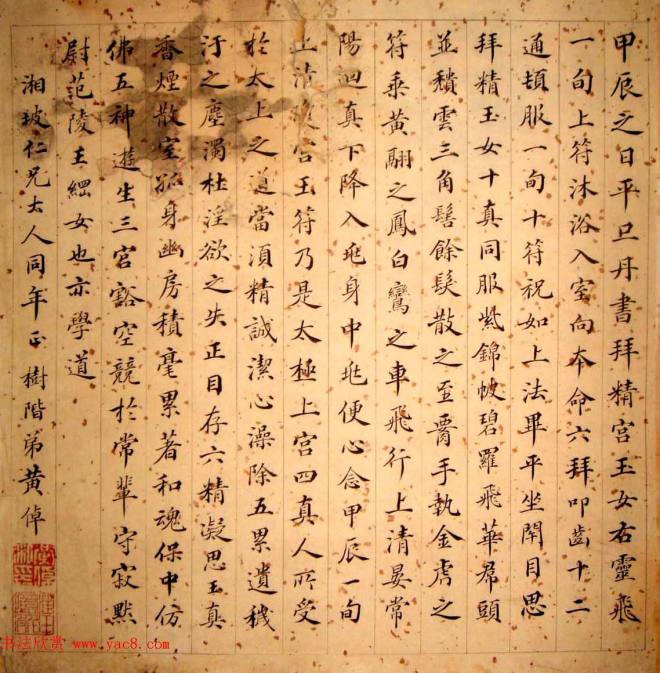 甲辰之日平旦丹書拜精宮玉女右靈飛
一旬上符沐浴入室向本命六拜叩齒十二
通頓服一旬十符祝如上法畢平坐閉目思
拜精玉女十真同服紫錦帔碧羅飛華帬頭
並穨雲三角髻餘髮散之至腰手執金虎之
符乘黃翮之鳳白鸞之車飛行上清晏常
陽迴真下降入兆身中兆便心念甲辰一旬
上清宮玉符乃是太極上宮四真人所受
於太上之道當須精誠潔心澡除五累遺穢
汙之塵濁杜淫欲之失正目存六精凝思玉真
香煙散室孤身幽房積毫累著和魂保中仿
佛五神遊生三宮豁空競於常輩守寂默
尉范陵王綱女也亦學道
湘坡仁兄大人同年正樹階弟黃倬
书法欣赏 www.yac8.com